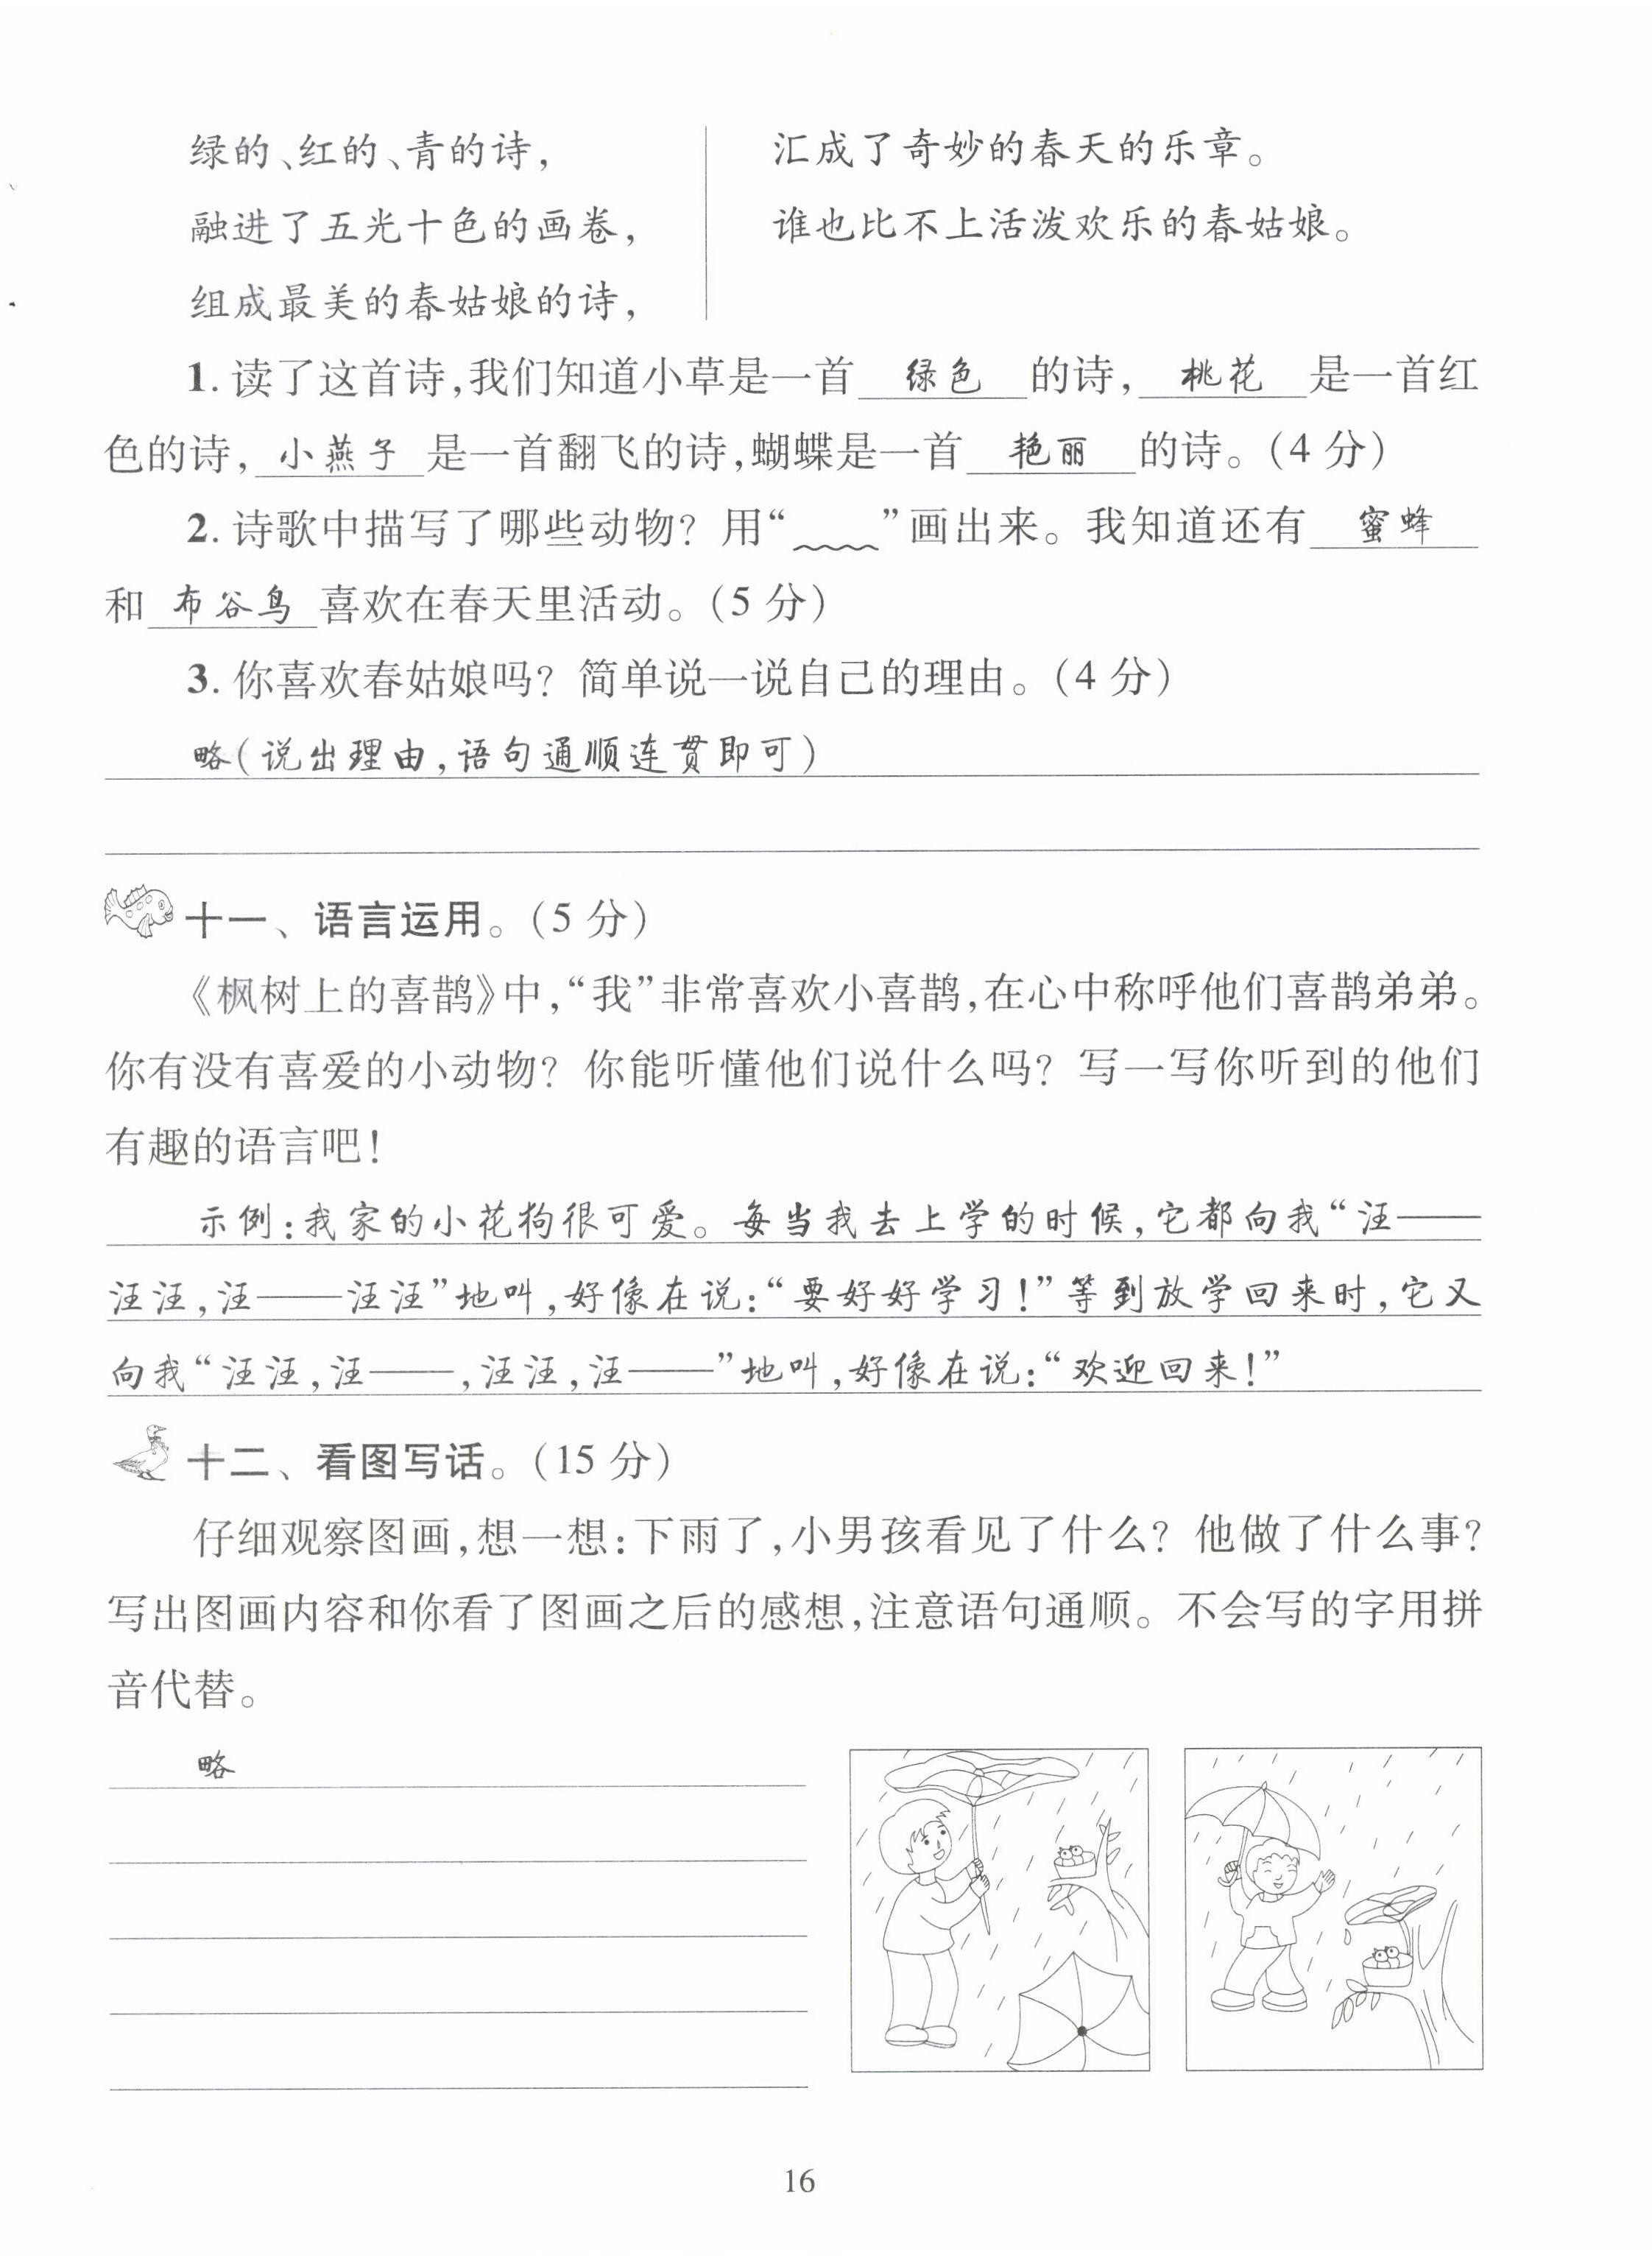 绿的、红的、青的诗，
融进了五光十色的画卷，
组成最美的春姑娘的诗，
汇成了奇妙的春天的乐章。
谁也比不上活泼欢乐的春姑娘。
1. 读了这首诗，我们知道小草是一首 绿色 的诗， 桃花 是一首红
色的诗， 小燕子 是一首翻飞的诗，蝴蝶是一首 艳丽 的诗。（4 分）
2. 诗歌中描写了哪些动物？用“﹏﹏”画出来。我知道还有 蜜蜂
和 布谷鸟 喜欢在春天里活动。（5 分）
3. 你喜欢春姑娘吗？简单说一说自己的理由。（4 分）
略（说出理由，语句通顺连贯即可）
十一、语言运用。（5 分）
《枫树上的喜鹊》中，“我”非常喜欢小喜鹊，在心中称呼他们喜鹊弟弟。
你有没有喜爱的小动物？你能听懂他们说什么吗？写一写你听到的他们
有趣的语言吧！
示例：我家的小花狗很可爱。每当我去上学的时候，它都向我“汪——
汪汪，汪——汪汪”地叫，好像在说：“要好好学习！”等到放学回来时，它又
向我“汪汪，汪——，汪汪，汪——”地叫，好像在说：“欢迎回来！”
十二、看图写话。（15 分）
仔细观察图画，想一想：下雨了，小男孩看见了什么？他做了什么事？
写出图画内容和你看了图画之后的感想，注意语句通顺。不会写的字用拼
音代替。
略
16